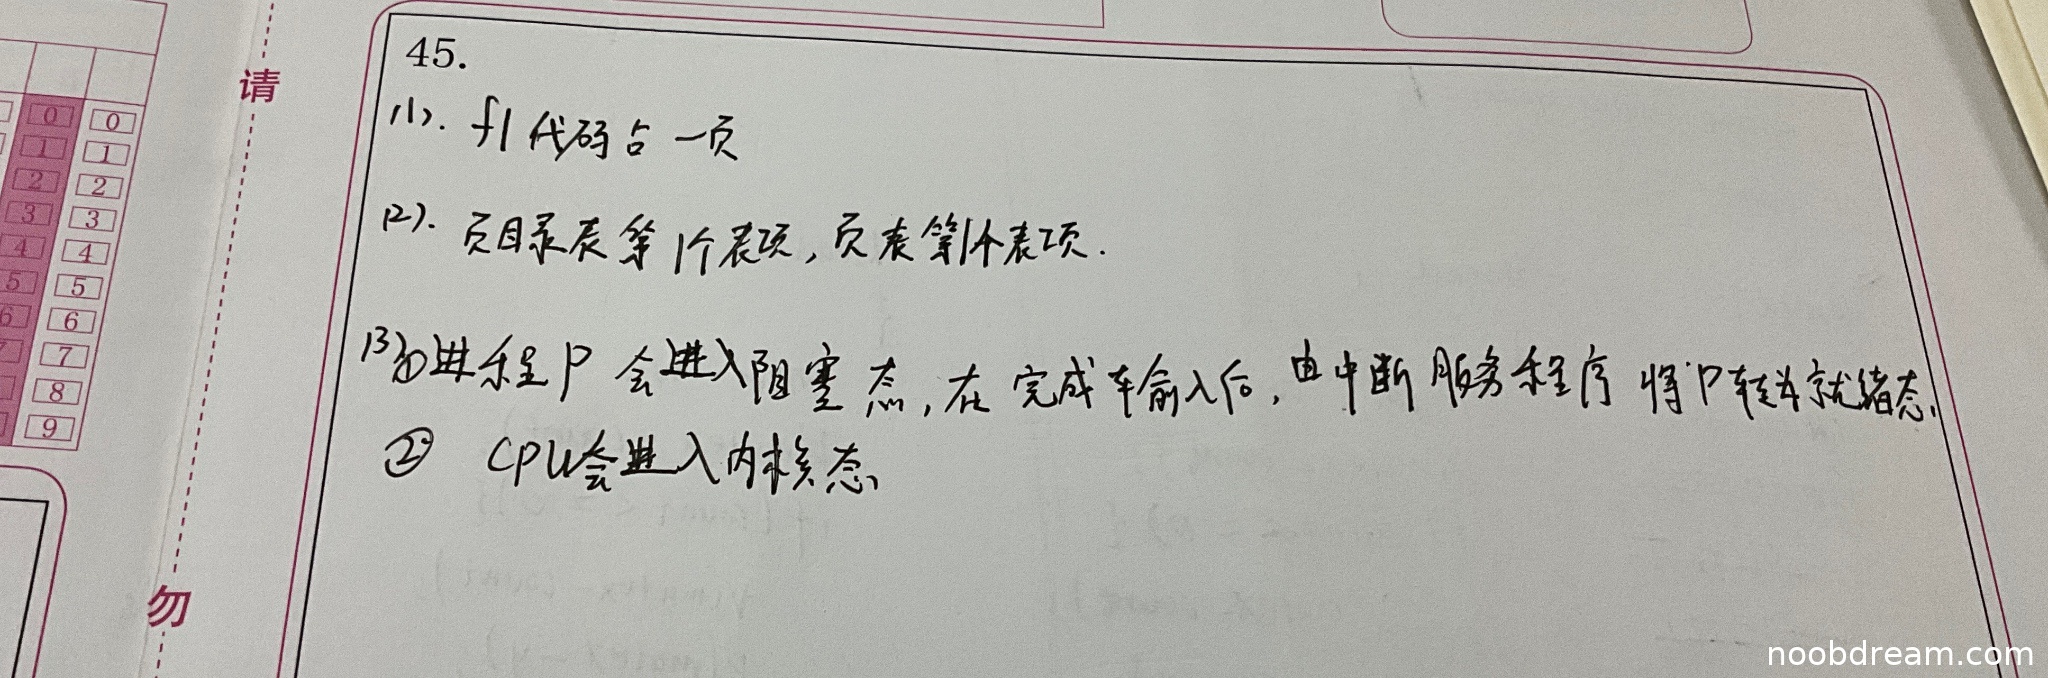 45.
(1). f1 代码占一页
(2). 页目录表第1个表项，页表第1个表项.
(3) ①进程P 会进入阻塞态，在完成输入后，由中断服务程序将P转为就绪态.
② CPU会进入内核态
请
勿
0 0
1 1
2 2
3 3
4 4
5 5
6 6
7 7
8
9
noobdream.com